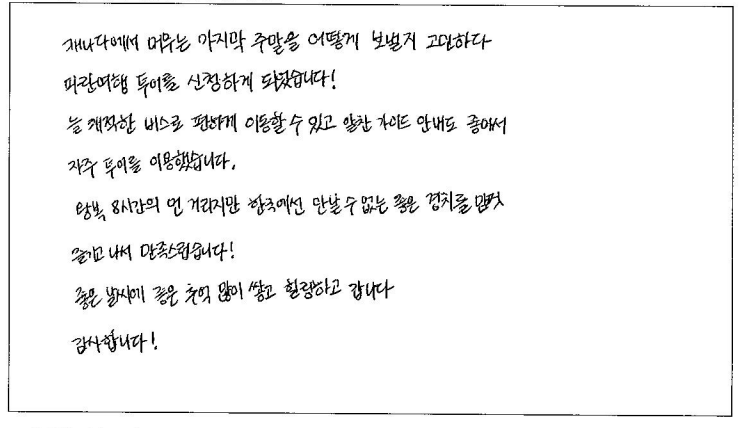 캐나다에서 머무는 마지막 주말을 어떻게 보낼지 고민하다
파란여행 투어를 신청하게 되었습니다!
늘 쾌적한 버스로 편하게 이동할 수 있고 알찬 가이드 안내도 좋아서
자주 투어를 이용했습니다.
왕복 8시간의 먼 거리지만 한국에선 만날 수 없는 좋은 경치를 맘껏
즐기고 나서 만족스럽습니다!
좋은 날씨에 좋은 추억 많이 쌓고 힐링하고 갑니다
감사합니다!